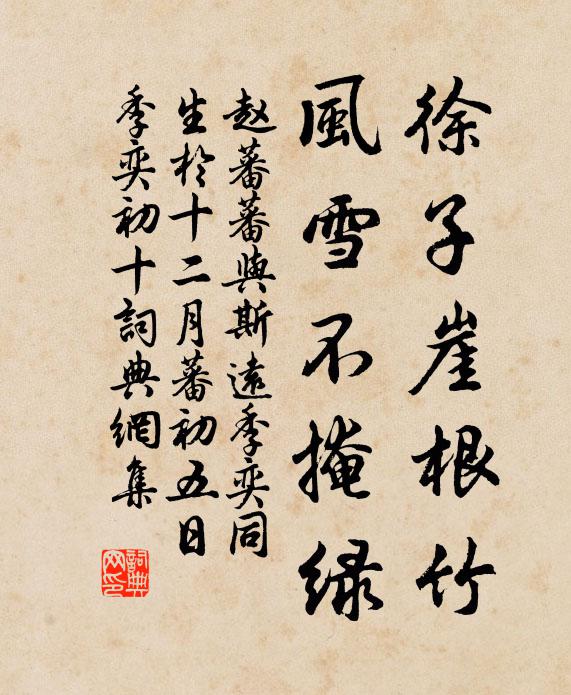 徐子崖根竹
風雪不掩緑
赵蕃蕃與斯遠季奕同
生於十二月蕃初五日
季奕初十詞典網集
詞典网印